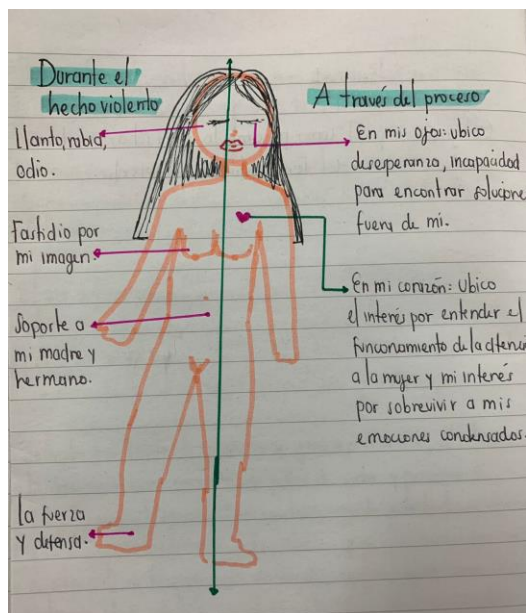 Durante el
hecho violento
Llanto, rabia,
odio.
Fastidio por
mi imagen.
Soporte a
mi madre y
hermano.
la fuerza
y defensa.
A través del proceso
En mis ojos: ubico
desesperanza, incapacidad
para encontrar solucione
fuera de mi.
En mi corazón: Ubico
el interés por entender el
funcionamiento de la atenció
a la mujer y mi interés
por sobrevivir a mis
emociones condensados.